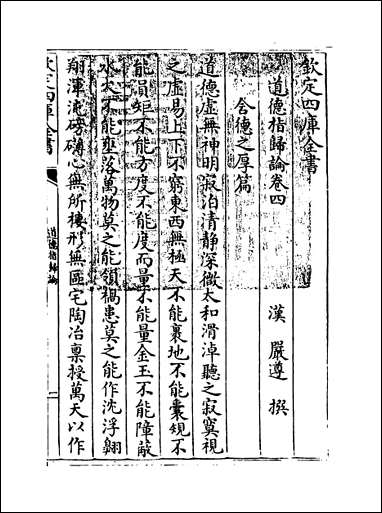 欽定四庫全書
道德指歸論卷四
漢 嚴遵 撰
含德之厚篇
道德虛無神明寂泊清靜深微太和滑淖聽之寂寞視
之虛易上下不窮東西無極天不能裹地不能囊規不
能員矩不能方度不能度而量不能量金玉不能障蔽
水火不能壅落萬物莫之能領禍患莫之能作沈浮翱
翔渾沌磅礴心無所棲形無區宅陶冶稟授萬天以作
欽定四庫全書
道德指歸論
一